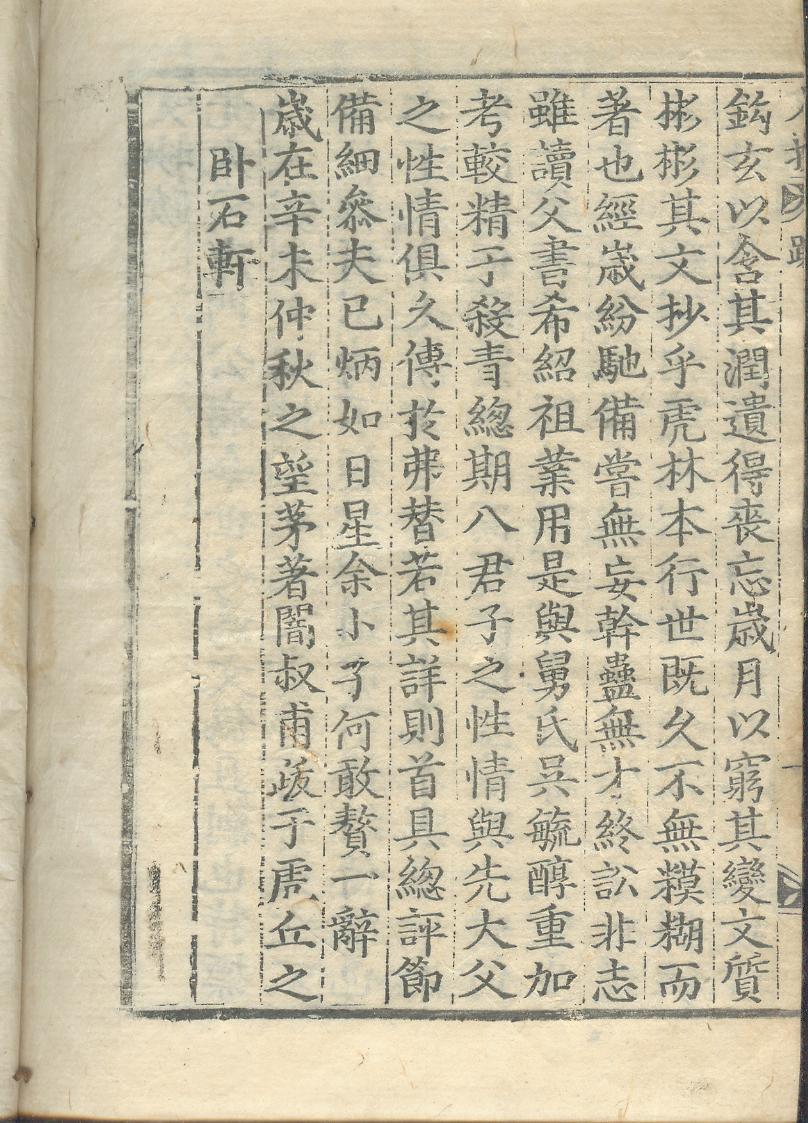 鈎玄以含其潤遺得喪忘歲月以窮其變文質
彬彬其文抄乎虎林本行世既久不無糢糊而
著也經嵗紛馳備嘗無妄幹蠱無才終訟非志
雖讀父書希紹祖業用是與舅氏吳毓醇重加
考較精于殺青總期八君子之性情與先大父
之性情俱久傳扵弗替若其詳則首具總評節
備細叅夫已炳如日星余小子何敢贅一辭
嵗在辛未仲秋之望茅著闇叔甫䟦于虎丘之
卧石軒